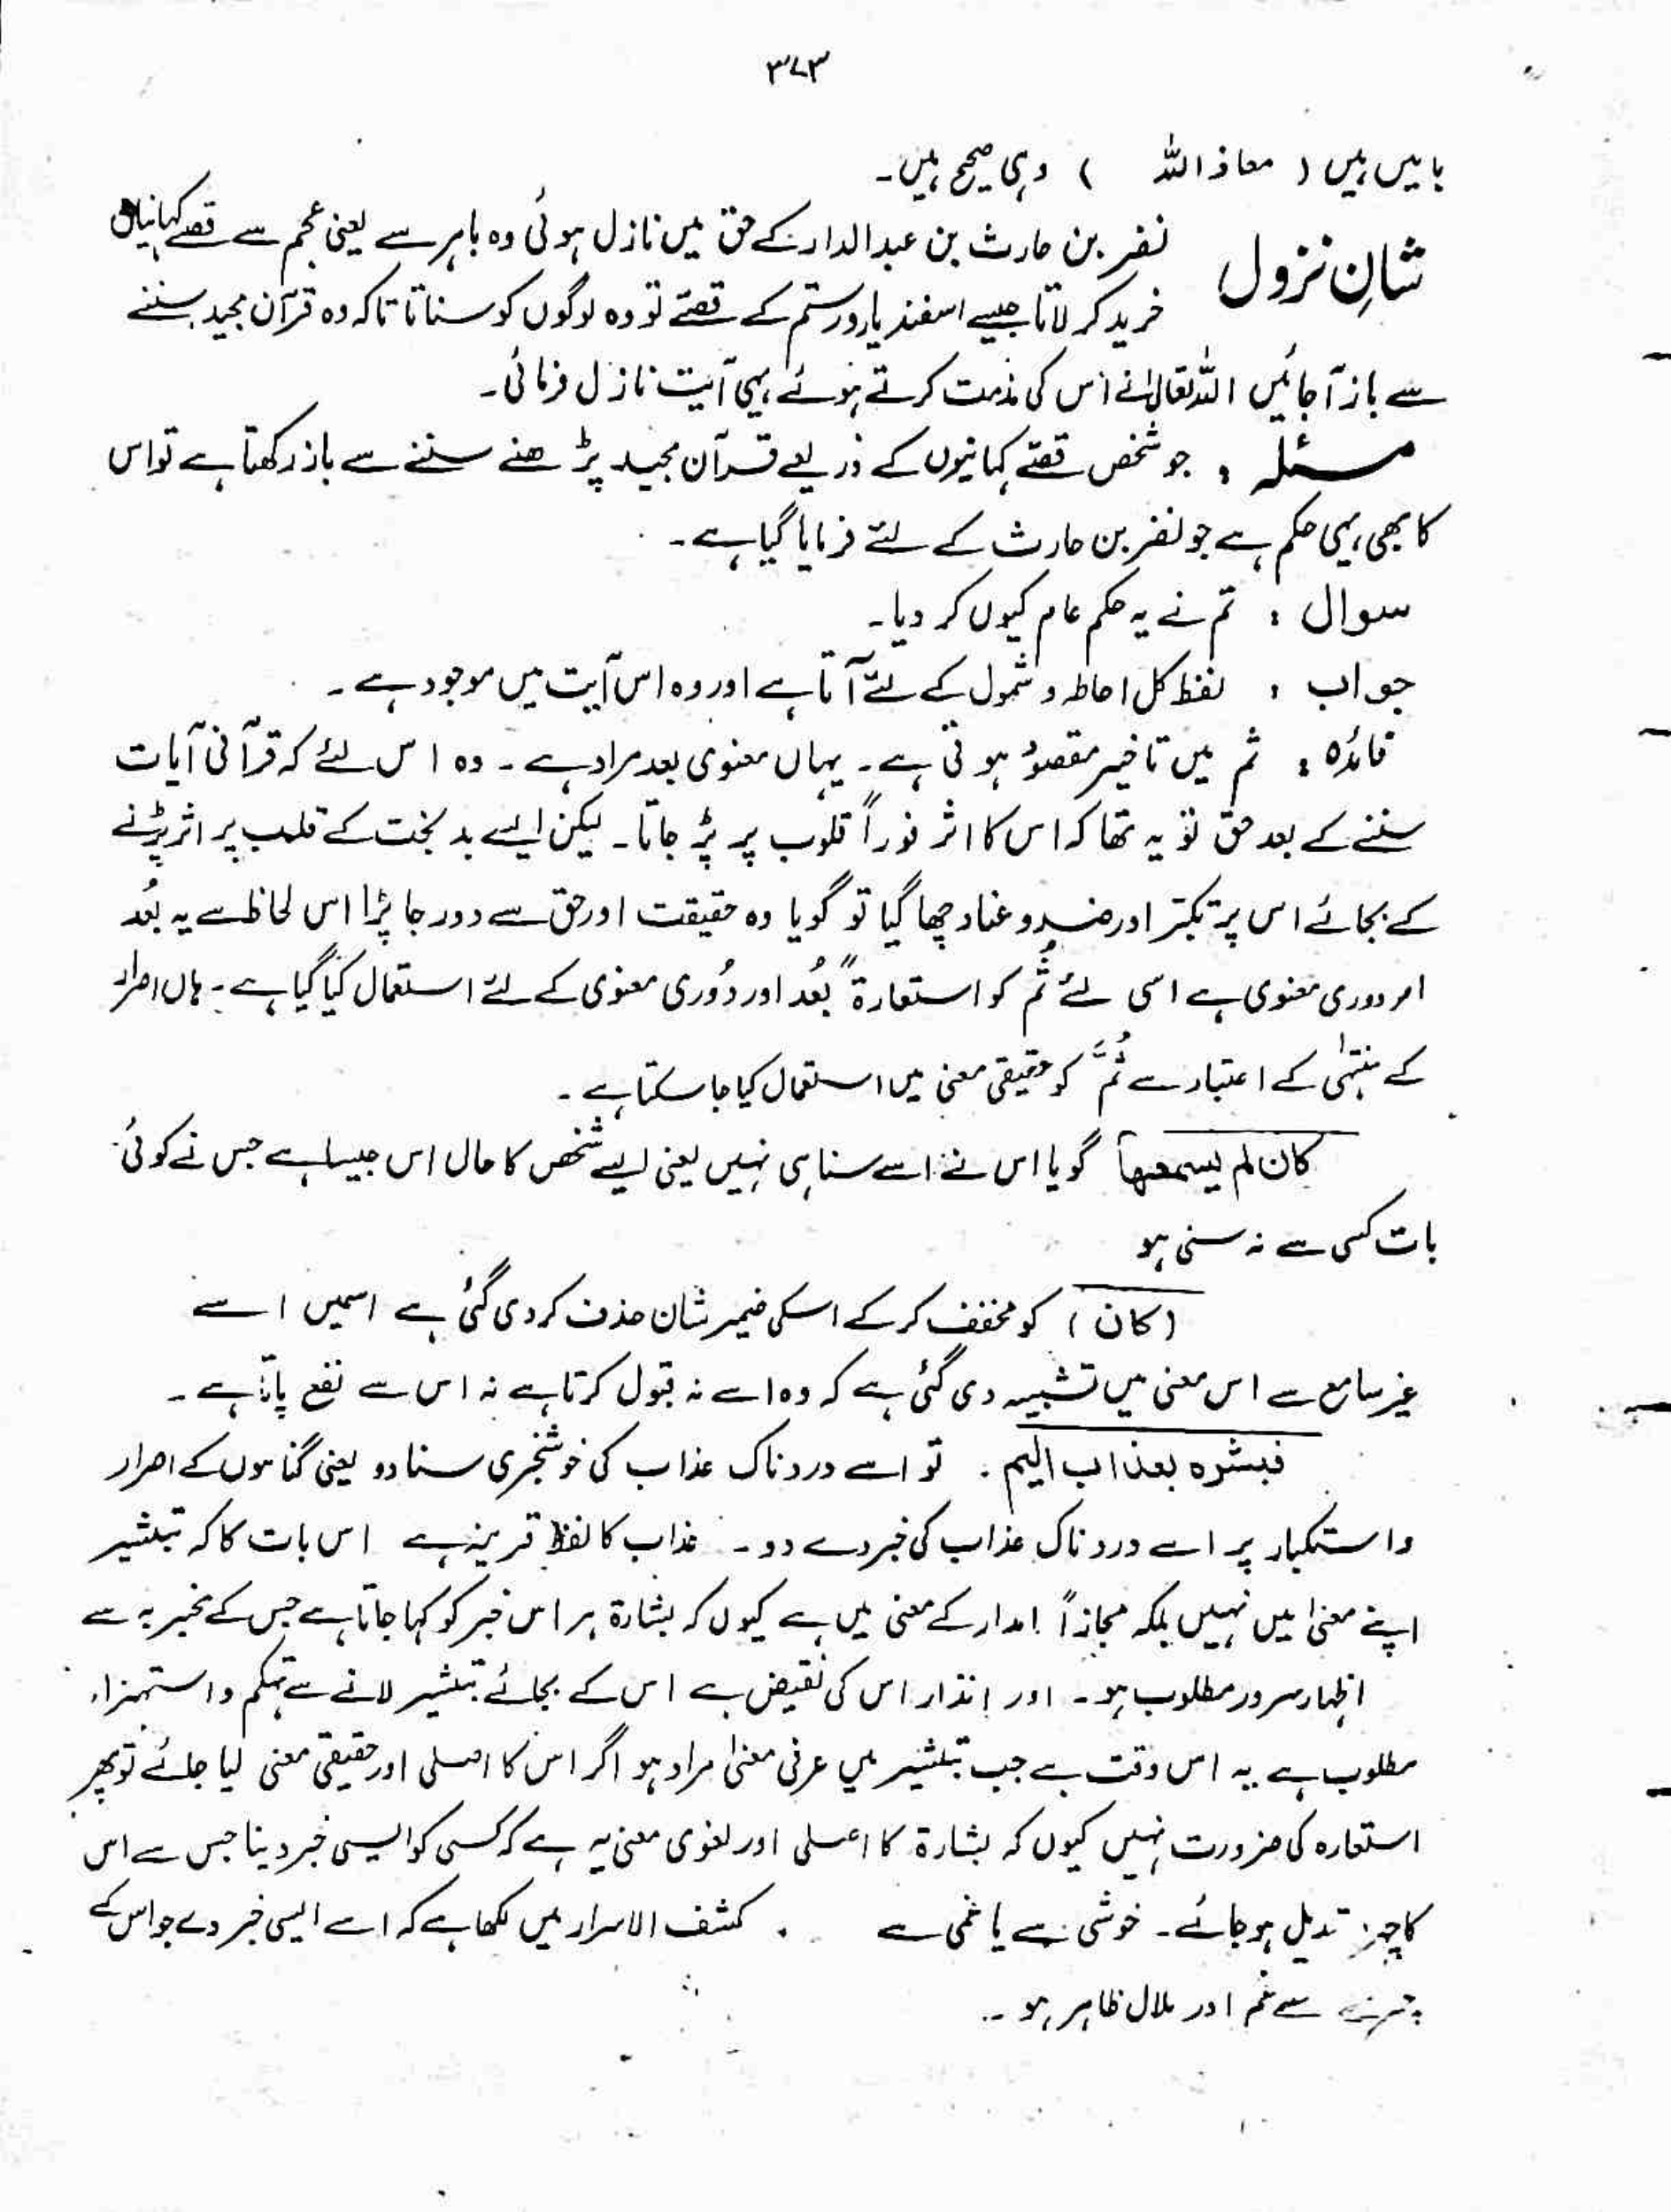 ۳۷۳
باتیں ہیں ( معاذ اللہ ) وہی صحیح ہیں۔
شانِ نزول نضر بن حارث بن عبد الدار کے حق میں نازل ہوئی وہ باہر سے یعنی عجم سے قصے کہانیاں
خرید کر لاتا جیسے اسفندیار و رستم کے قصّے تو وہ لوگوں کو سناتا تاکہ وہ قرآن مجید سننے
سے باز آجائیں اللہ تعالیٰ نے اس کی مذمت کرتے ہوئے یہی آیت نازل فرمائی۔
مسئلہ : جو شخص قصّے کہانیوں کے ذریعے قرآن مجید پڑھنے سننے سے باز رکھتا ہے تو اس
کا بھی یہی حکم ہے جو نضر بن حارث کے لئے فرمایا گیا ہے۔
سوال : تم نے یہ حکم عام کیوں کر دیا۔
جواب : لفظ کل احاطہ و شمول کے لئے آتا ہے اور وہ اس آیت میں موجود ہے۔
فائدہ : ثم میں تاخیر مقصود ہوتی ہے۔ یہاں معنوی بعد مراد ہے۔ وہ اس لئے کہ قرآنی آیات
سننے کے بعد حق تو یہ تھا کہ اس کا اثر فوراً قلوب پر پڑ جاتا۔ لیکن ایسے بد بخت کے قلب پر اثر پڑنے
کے بجائے اس پر تکبّر اور ضد و عناد چھا گیا تو گویا وہ حقیقت اور حق سے دور جا پڑا اس لحاظ سے یہ بُعد
امر دوری معنوی ہے اسی لئے ثُم کو استعارۃً بُعد اور دُوری معنوی کے لئے استعمال کیا گیا ہے۔ ہاں اصرار
کے منتہیٰ کے اعتبار سے ثُمَّ کو حقیقی معنی میں استعمال کیا جا سکتا ہے۔
کان لم یسمعھا گویا اس نے اسے سنا ہی نہیں یعنی ایسے شخص کا حال اس جیسا ہے جس نے کوئی
بات کسی سے نہ سنی ہو
(کان) کو مخفف کر کے اسکی ضمیر شان حذف کر دی گئی ہے اسمیں اسے
غیر سامع سے اس معنی میں تشبیہ دی گئی ہے کہ وہ اسے نہ قبول کرتا ہے نہ اس سے نفع پاتا ہے۔
فبشرہ بعذاب الیم . تو اسے دردناک عذاب کی خوشخبری سنا دو یعنی گناہوں کے اصرار
و استکبار پر اسے دردناک عذاب کی خبر دے دو۔ عذاب کا لفظ قرینہ ہے اس بات کا کہ تبشیر
اپنے معنیٰ میں نہیں بلکہ مجازاً کے معنی میں ہے کیوں کہ بشارۃ ہر اس خبر کو کہا جاتا ہے جس کے مخبر بہ سے
اظہار سرور مطلوب ہو۔ اور انذار اس کی نقیض ہے اس کے بجائے تبشیر لانے سے تہکم و استہزاء
مطلوب ہے یہ اس وقت ہے جب تبشیر میں عرفی معنیٰ مراد ہو اگر اس کا اصلی اور حقیقی معنی لیا جائے تو پھر
استعارہ کی ضرورت نہیں کیوں کہ بشارۃ کا اصلی اور لغوی معنی یہ ہے کہ کسی کو ایسی خبر دینا جس سے اس
کا چہرہ تبدیل ہو جائے۔ خوشی سے یا غمی سے . کشف الاسرار میں لکھا ہے کہ اسے ایسی خبر دے جو اس کے
چہرے سے غم اور ملال ظاہر ہو ۔